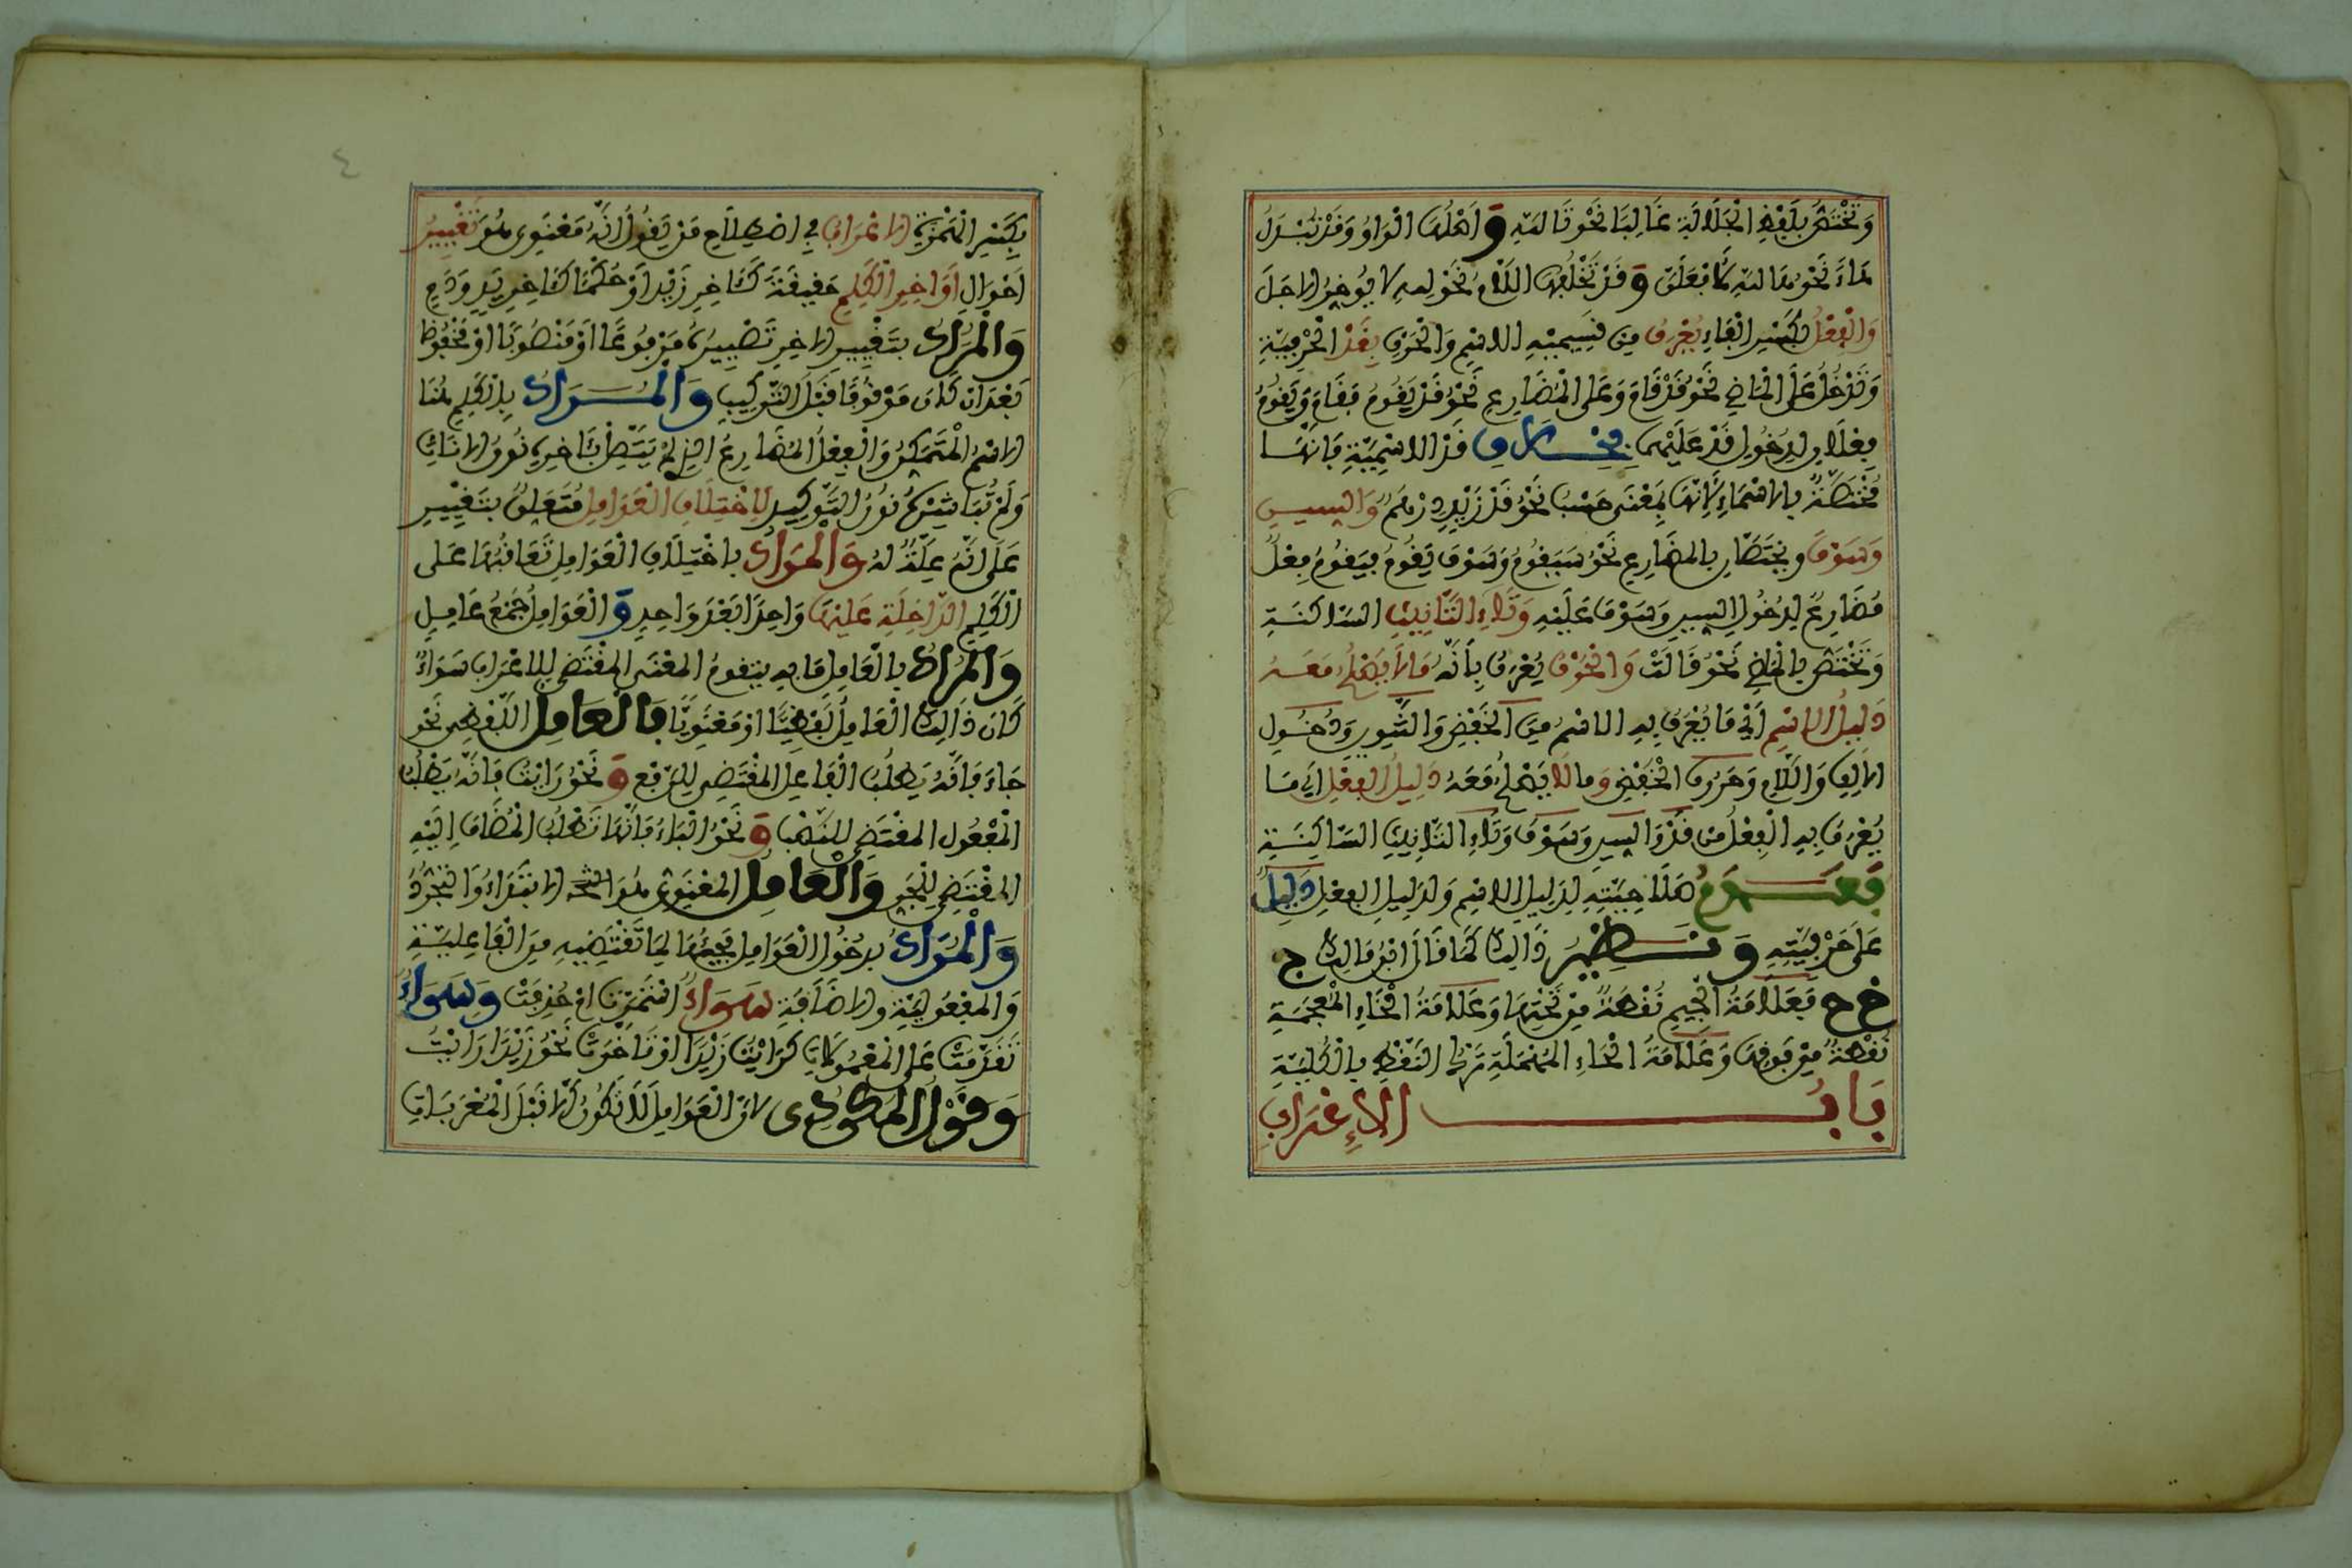 وَتَخْتَصُّ بِلَفْظِ الْجَلَالَةِ غَالِبًا نَحْوُ تَاللَّهِ وَ أَصْلُهَا الْوَاوُ وَقَدْ تُبْدَلُ
هَاءً نَحْوُ هَا اللَّهِ لَأَفْعَلَنَّ وَ قَدْ تَخْلُفُهَا اللَّامُ نَحْوُ لله لا يُوخَرُ الاجَلُ
وَالْفِعْلُ بِكَسْرِ الْفَاءِ يُعْرَفُ مِنْ قَسِيمَيْهِ الِاسْمِ وَالْحَرْفِ بِقَدْ الْحَرْفِيَّةِ
وَتَدْخُلُ عَلَى الْمَاضِي نَحْوُ قَدْ قَامَ وَعَلَى الْمُضَارِعِ نَحْوُ قَدْ يَقُومُ فَقَامَ وَيَقُومُ
فِعْلَانِ لِدُخُولِ قَدْ عَلَيْهِمَا بِخِلَافِ قَدْ الِاسْمِيَّةِ فَإِنَّهَا
مُخْتَصَّةٌ بِالاسْمَاءِ لِأَنَّهَا بِمَعْنَى حَسْبُ نَحْوُ قَدْ زَيْدٍ دِرْهَمٌ وَالسِّينِ
وَسَوْفَ وَيَخْتَصَّانِ بِالْمُضَارِعِ نَحْوُ سَيَقُومُ وَسَوْفَ يَقُومُ فَيَقُومُ فِعْلٌ
مُضَارِعٌ لِدُخُولِ السِّينِ وَسَوْفَ عَلَيْهِ وَتَاءِ التَّأْنِيثِ السَّاكِنَةِ
وَتَخْتَصُّ بِالْمَاضِي نَحْوُ قَالَتْ وَالْحَرْفُ يُعْرَفُ بِأَنَّهُ مَالَا يَصْلُحُ مَعَهُ
دَلِيلُ الِاسْمِ أَيْ مَا يُعْرَفُ بِهِ الِاسْمُ مِنَ الْخَفْضِ وَالتَّنْوِينِ وَدُخُولِ
الالِفِ وَاللَّامِ وَحُرُوفِ الْخَفْضِ وَمَا لَا يَصْلُحُ مَعَهُ دَلِيلُ الْفِعْلِ أَيْ مَا
يُعْرَفُ بِهِ الْفِعْلُ مِنْ قَدْ وَالسِّينِ وَسَوْفَ وَتَاءِ التَّأْنِيثِ السَّاكِنَةِ
فَعَدَمُ صَلَاحِيَّتِهِ لِدَلِيلِ الِاسْمِ وَلِدَلِيلِ الْفِعْلِ دَلِيلٌ
عَلَى حَرْفِيَّتِهِ وَنَظِيرُ ذَالِكَ كَمَا قَالَ ابْنُ مَالِكٍ ج
خ ح فَعَلَامَةُ الْجِيمِ نُقْطَةٌ مِنْ تَحْتِهَا وَعَلَامَةُ الْخَاءِ الْمُعْجَمَةِ
نُقْطَةٌ مِنْ فَوْقِهَا وَعَلَامَةُ الْحَاءِ الْمُهْمَلَةِ تَرْكُ النَّقْطِ بِالْكُلِّيَّةِ
بَابُ الْإِعْرَابِ
٤
بِكَسْرِ الْهَمْزَةِ الاعْرَابُ فِي اصْطِلَاحِ مَنْ يَقُولُ انَّهُ مَعْنَوِي هُوَ تَغْيِيرُ
أَحْوَالِ أَوَاخِرِ الْكَلِمِ حَقِيقَةً كَآخِرِ زَيْدٍ أَوْ حُكْمًا كَآخِرِ يَدٍ وَدَمٍ
وَالْمُرَادُ بِتَغْيِيرِ الاخِرِ تَصْيِيرُهُ مَرْفُوعًا أَوْ مَنْصُوبًا أَوْ مَخْفُوظًا
بَعْدَ انْ كَانَ مَوْقُوفًا قَبْلَ التَّرْكِيبِ وَالْمُرَادُ بِالْكَلِمِ هُنَا
الاسْمُ الْمُتَمَكِّنُ وَالْفِعْلُ الْمُضَارِعُ الذِي لَمْ يَتَّصِلْ بِآخِرِهِ نُونُ الانَاثِ
وَلَمْ تُبَاشِرْهُ نُونُ التَّوْكِيدِ لِاخْتِلَافِ الْعَوَامِلِ مُتَعَلِّقٌ بِتَغْيِيرِ
عَلَى أَنَّهُ عِلَّةٌ لَهُ وَالْمُرَادُ بِاخْتِلَافِ الْعَوَامِلِ تَعَاقُبُهَا عَلَى
الْكَلِمِ الدَّاخِلَةِ عَلَيْهَا وَاحِدًا بَعْدَ وَاحِدٍ وَ الْعَوَامِلُ جَمْعُ عَامِلٍ
وَالْمُرَادُ بِالْعَامِلِ مَا بِهِ يَتَقَوَّمُ الْمَعْنَى الْمُقْتَضِي لِلاعْرَابِ سَوَاءٌ
كَانَ ذَالِكَ الْعَامِلُ لَفْظِيًّا اوْ مَعْنَوِيًّا فَالْعَامِلُ اللَّفْظِي نَحْوُ
جَاءَ فَانَّهُ يَطْلُبُ الْفَاعِلَ الْمُقْتَضِي لِلرَّفْعِ وَ نَحْوُ رَايْتُ فَانَّهُ يَطْلُبُ
الْمَفْعُولَ الْمُقْتَضِي لِلنَّصْبِ وَ نَحْوُ الْبَاءِ فَانَّهَا تَطْلُبُ الْمُضَافَ إِلَيْهِ
الْمُقْتَضِي لِلْجَرِّ وَالْعَامِلُ الْمَعْنَوِيُّ هُوَ الابْتِدَاءُ وَالتَّجَرُّدُ
وَالْمُرَادُ بِدُخُولِ الْعَوَامِلِ مَجِيئُهَا لِمَا تَقْتَضِيهِ مِنَ الْفَاعِلِيَّةِ
وَالْمَفْعُولِيَّةِ وَالاضَافَةِ سَوَاءٌ اسْتَمَرَّتْ امْ حُذِفَتْ وَسَوَاءٌ
تَقَدَّمَتْ عَلَى الْمَعْمُولَاتِ كَرَايْتُ زَيْدًا اوْ تَأَخَّرَتْ نَحْوُ زَيْدًا رَايْتُ
وَقَوْلُ الْمَكُودِي لانَّ الْعَوَامِلَ لَا تَكُونُ الَّا قَبْلَ الْمُعْرَبَاتِ